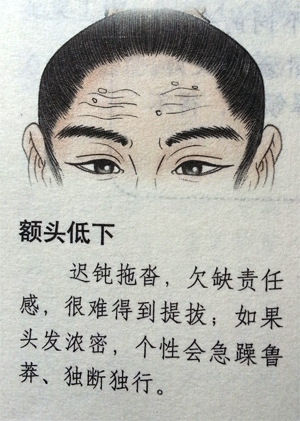 额头低下
迟钝拖沓，欠缺责任
感，很难得到提拔；如果
头发浓密，个性会急躁鲁
莽、独断独行。